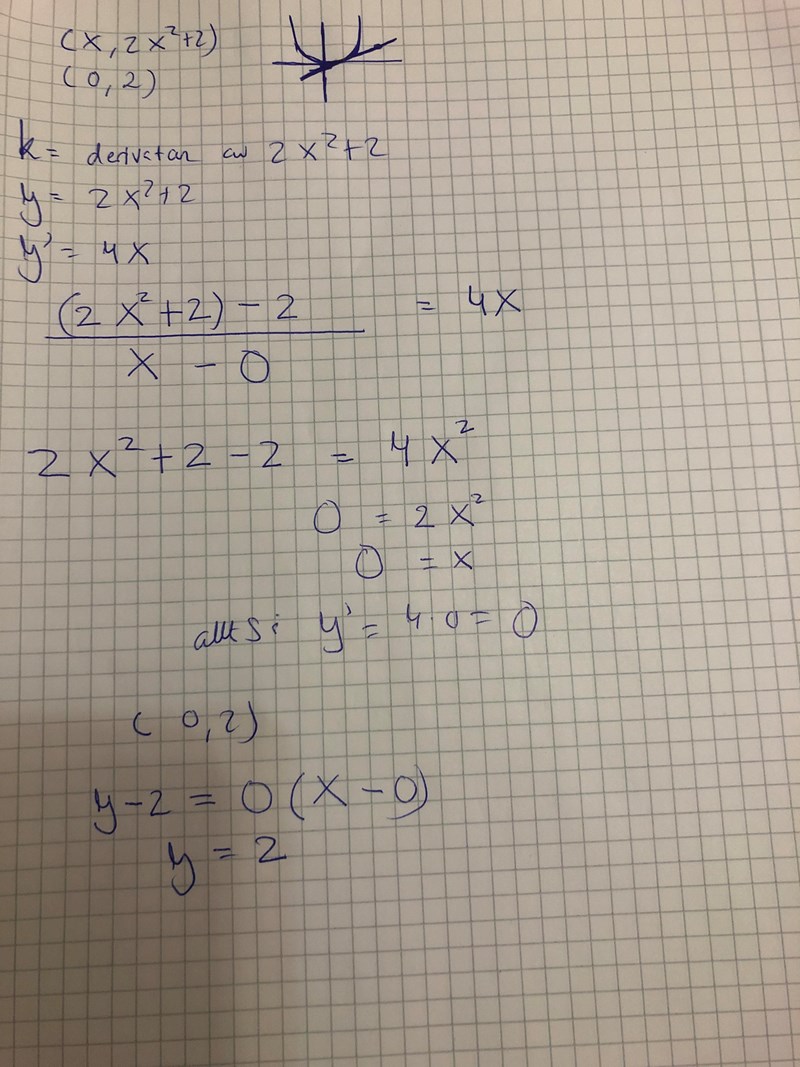 (x, 2x²+2)
(0, 2)
k = derivatan av 2x²+2
y = 2x²+2
y' = 4x
(2x²+2) - 2 / x - 0 = 4x
2x²+2-2 = 4x²
0 = 2x²
0 = x
alltså: y' = 4·0 = 0
(0,2)
y-2 = 0(x-0)
y = 2